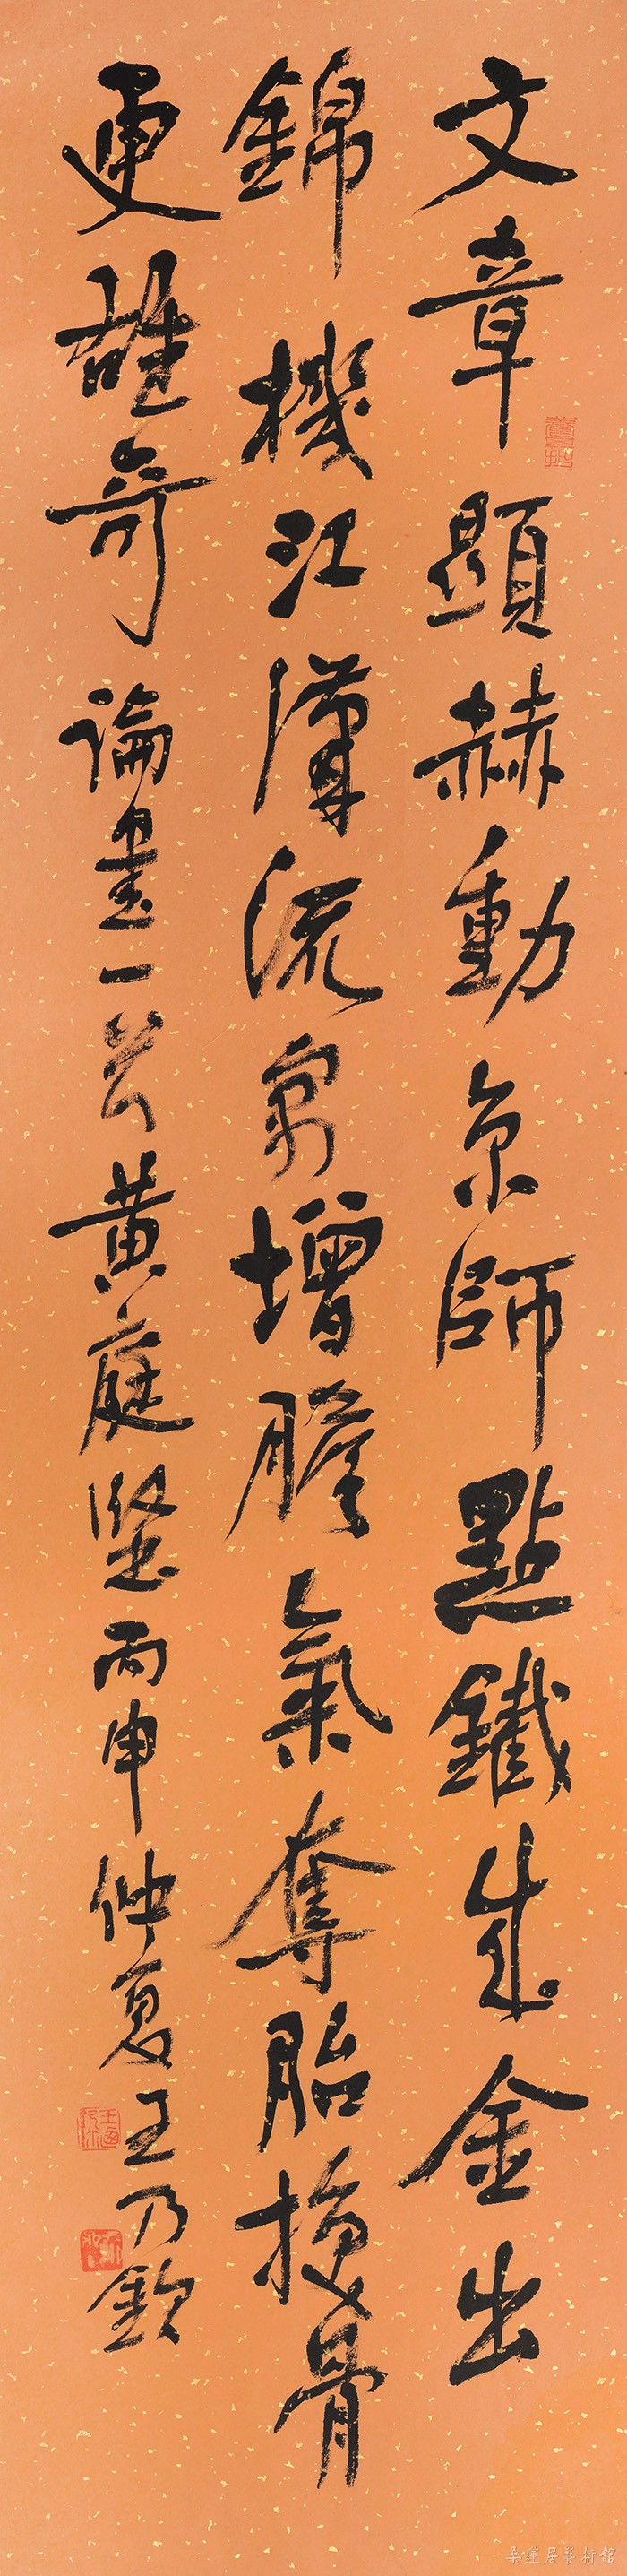 文章顯赫動京師點鐵成金出
錦機江漢流增膽氣奪胎換骨
更雄奇 論書一黃庭堅 丙申仲夏王乃欽
蓮居藝術館